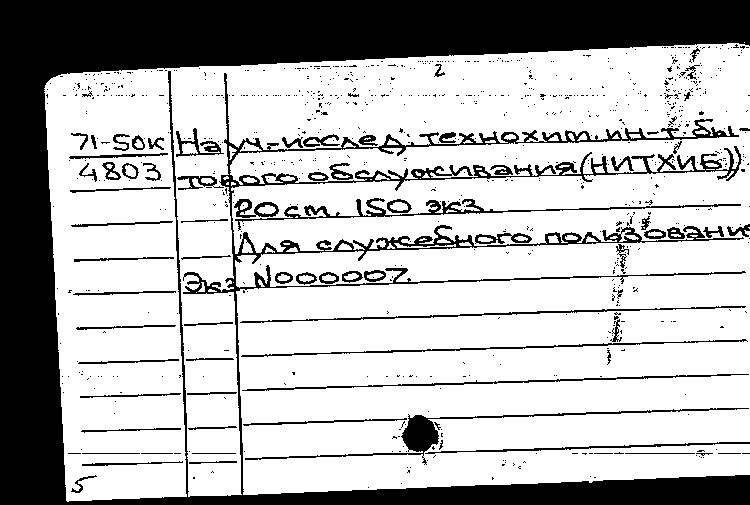 2
71-50к Науч.-исслед. технохим. ин-т бы-
4803 тового обслуживания (НИТХИБ)).
20 см. 150 экз.
Для служебного пользования
Экз. N000007.
5